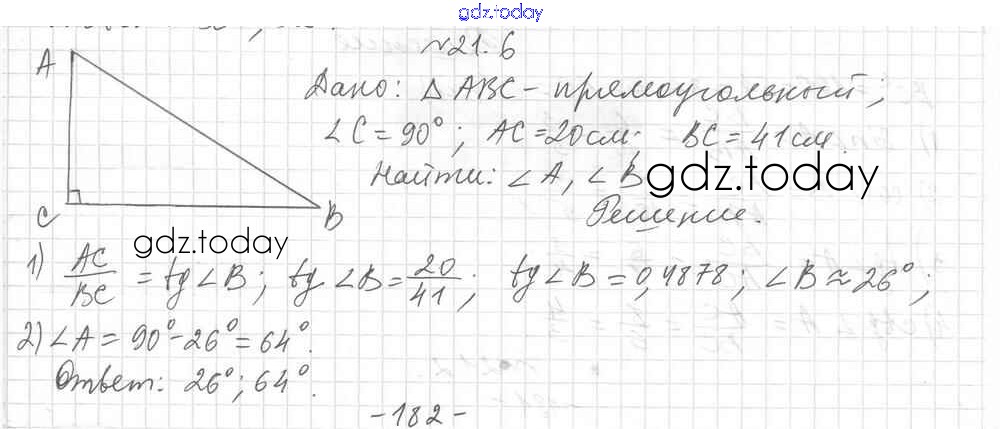 gdz.today
№21.6
A
Дано: △ ABC - прямоугольный;
∠C = 90°; AC = 20см; BC = 41см.
Найти: ∠A, ∠B
gdz.today
C
B
Решение.
gdz.today
1) AC/BC = tg∠B; tg∠B = 20/41; tg∠B = 0,4878; ∠B ≈ 26°;
2) ∠A = 90° - 26° = 64°.
Ответ: 26°; 64°.
- 182 -